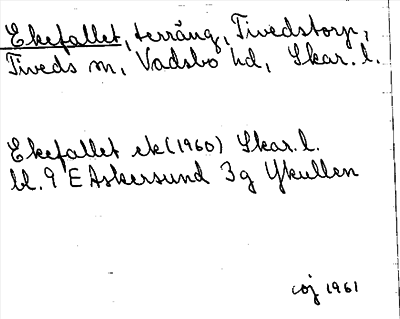 Ekefallet, terräng, Tivedstorp,
Tiveds sn, Vadsbo hd, Skar. l.
Ekefallet ek (1960) Skar. l.
bl. 9 E Askersund 3g Ykullen
1961